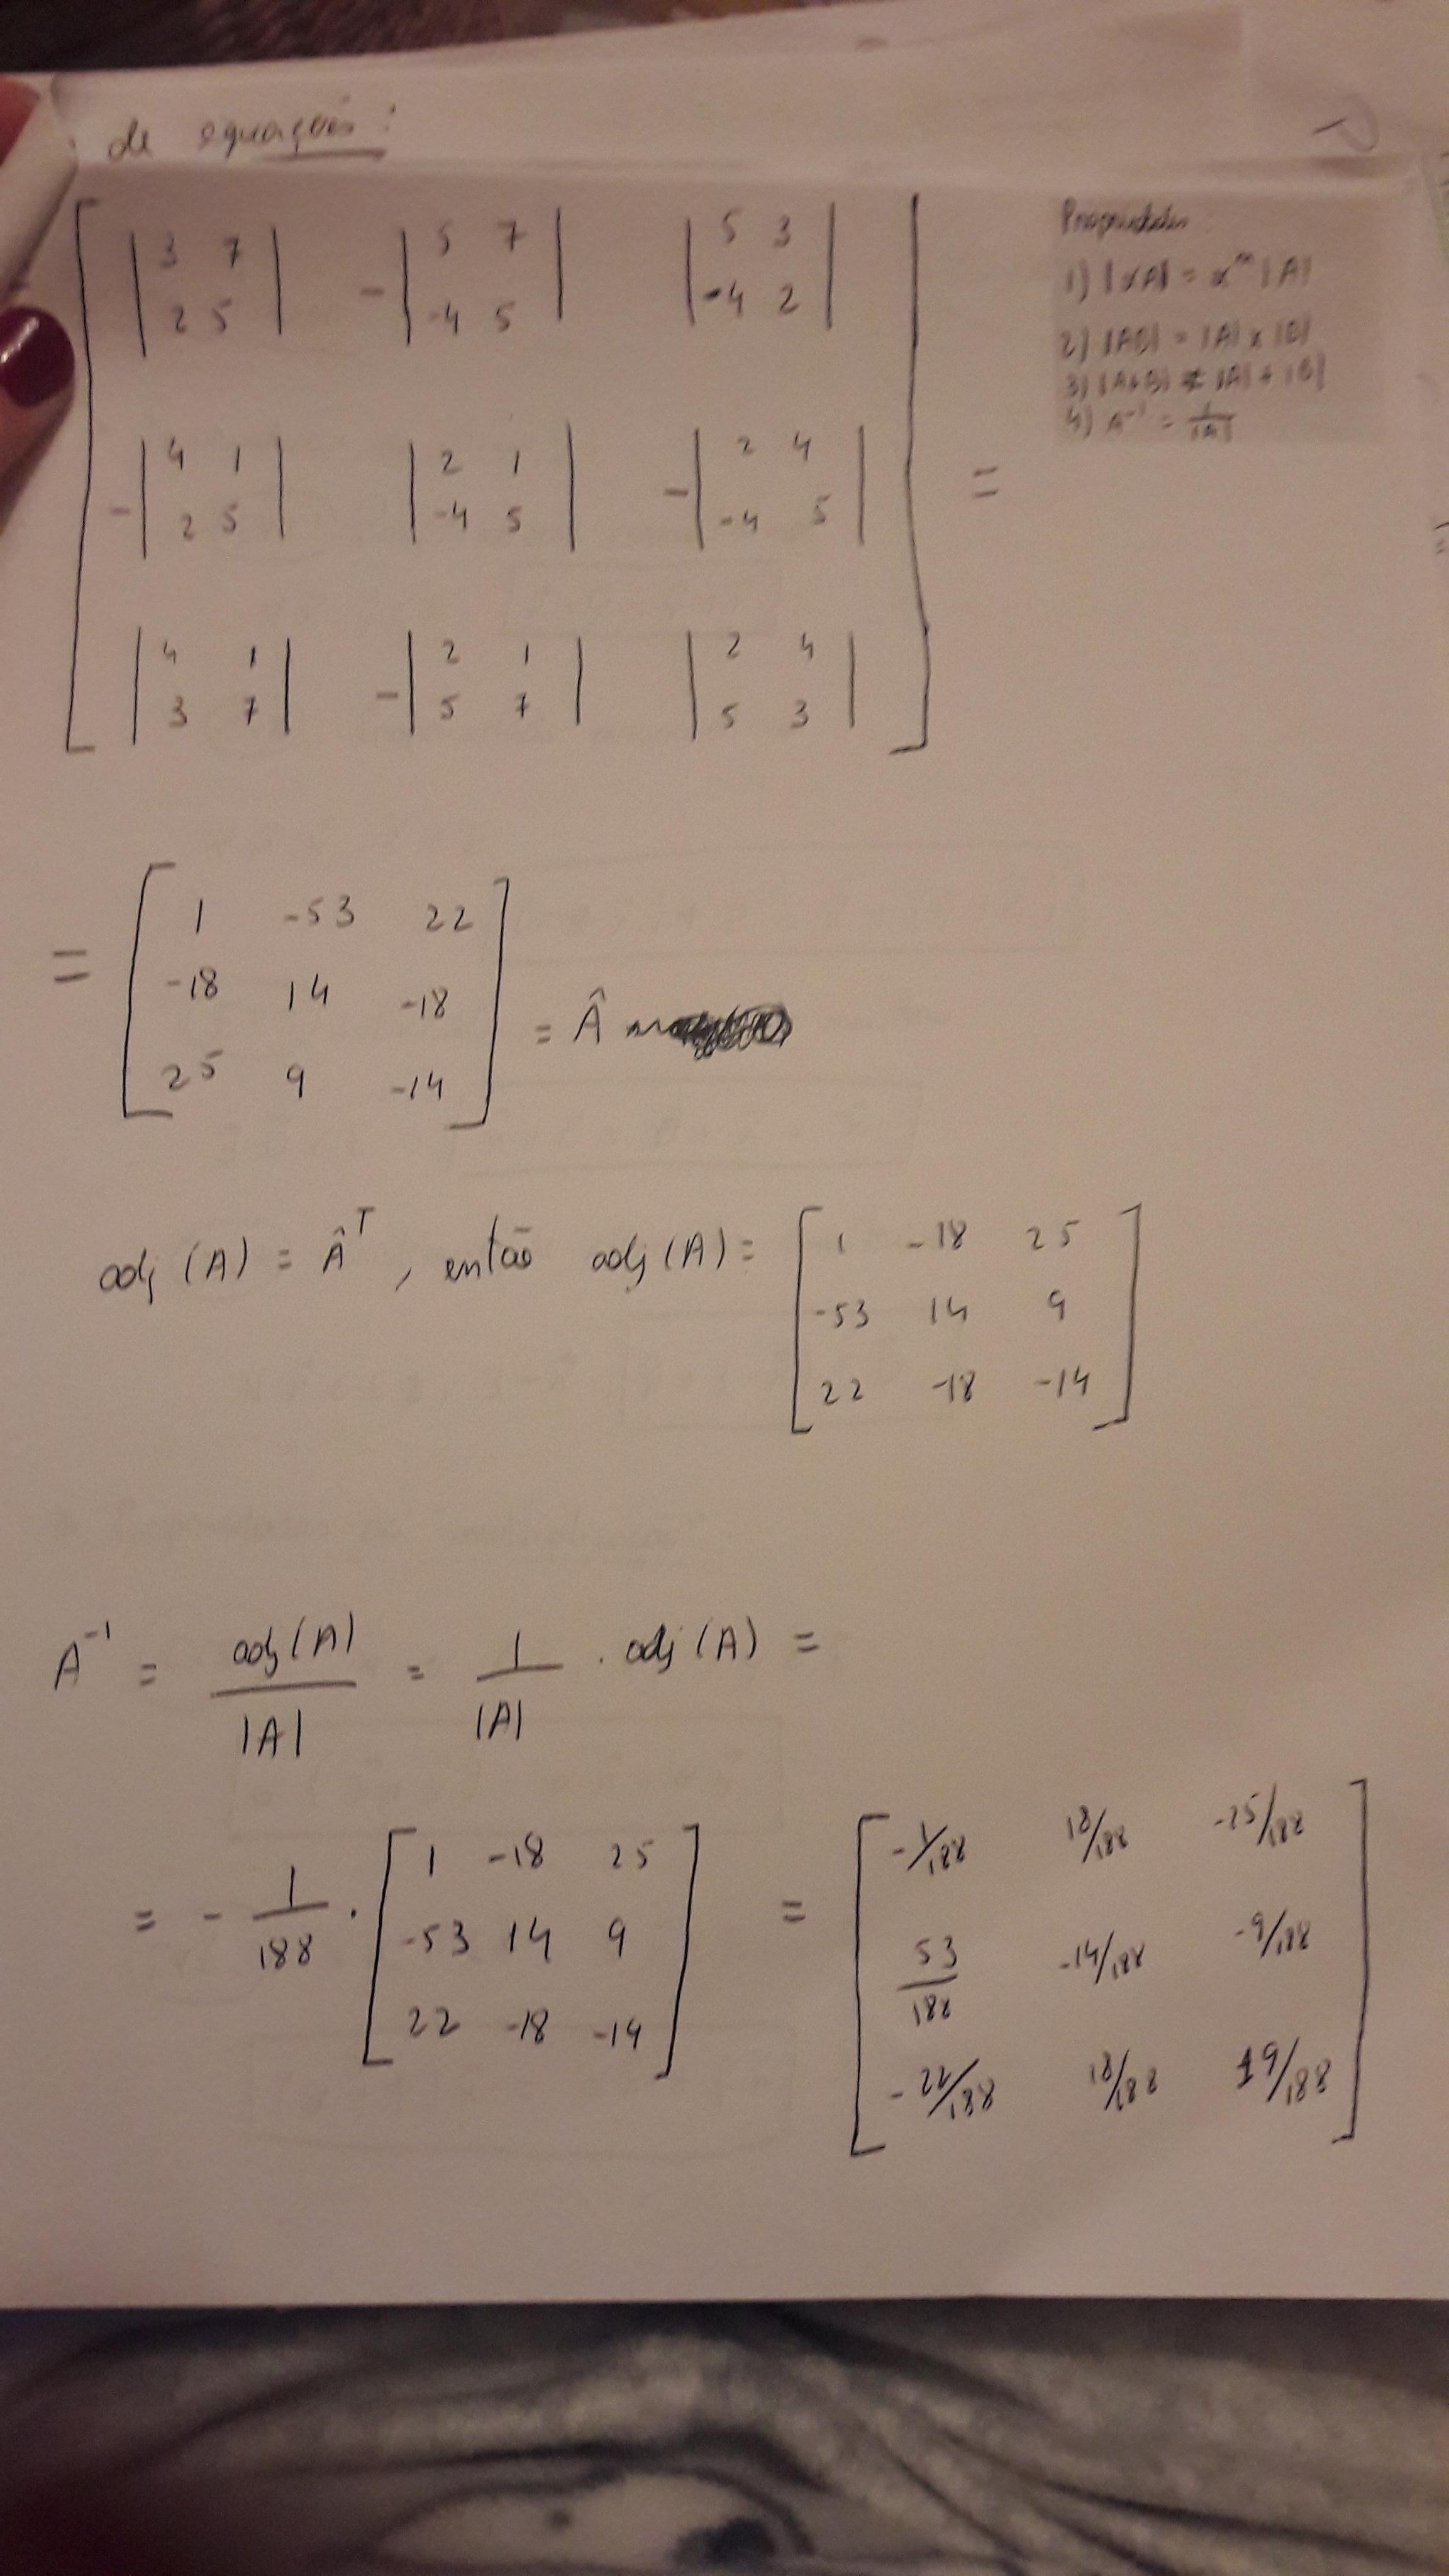 de equações:
| 3 7 | - | 5 7 | | 5 3 |
| 2 5 | | -4 5 | | -4 2 |
- | 4 1 | | 2 1 | - | 2 4 | =
| 2 5 | | -4 5 | | -4 5 |
| 4 1 | - | 2 1 | | 2 4 |
| 3 7 | | 5 7 | | 5 3 |
Propriedades
1) |αA| = αⁿ |A|
2) |AB| = |A| x |B|
3) |A+B| ≠ |A| + |B|
4) A⁻¹ = 1/|A|
= [ 1 -53 22
-18 14 -18
25 9 -14 ] = Â
adj (A) = Âᵀ, então adj (A) = [ 1 -18 25
-53 14 9
22 -18 -14 ]
A⁻¹ = adj(A)/|A| = 1/|A| . adj (A) =
= - 1/188 . [ 1 -18 25
-53 14 9
22 -18 -14 ] = [ -1/188 18/188 -25/188
53/188 -14/188 -9/188
-22/188 18/188 19/188 ]